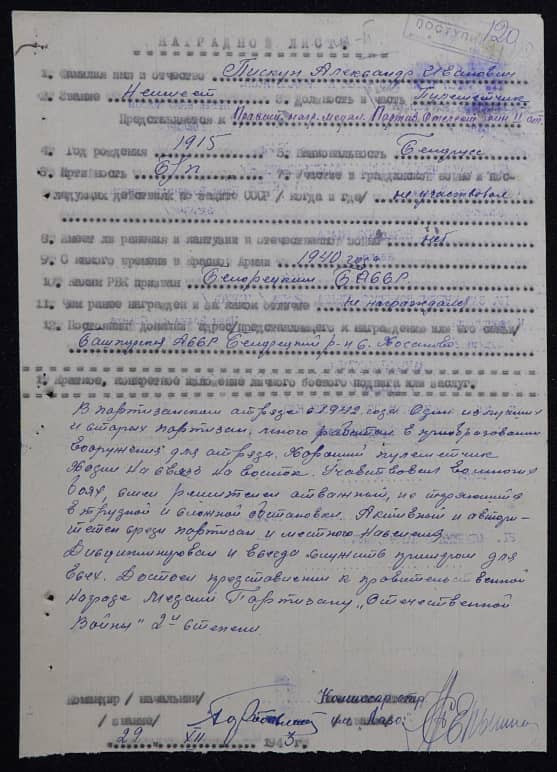 ПОСТУПИ
120
НАГРАДНОЙ ЛИСТ
1. Фамилия имя и отчество Пискун Александр Иванович
2. Звание 3. Должность и часть
Представляется к
4. Год рождения 1915 5. Национальность
6. Партийность б/п 7. Участие в гражданской войне и пос-
ледующих действиях по защите СССР / когда и где/ не участвовал
8. Имеет ли ранения и контузии в отечественной войне нет
9. С какого времени в Красной Армии 1940 года
10. Каким РВК призван Белорецким БАССР
11. Чем ранее награжден и за какие отличия не награждался
12. Постоянный домашний адрес/представляемого к награждению или его семьи/
Башкирская АССР Белорецкий р-н с.
1. Краткое, конкретное изложение личного боевого подвига или заслуг.
В партизанском отряде с 1942 года. Один из лучших
и старых партизан, много работал в
вооружения для отряда. Хороший пулеметчик
Ходил на связь на восток. Участвовал во многих
боях, был решителен отважный, не
в трудной и сложной обстановки. Активный и автори-
тетен среди партизан и местного населения
Дисциплинирован и всегда служить примером для
всех. Достоен представлении к правительственной
награде Медали Партизану „Отечественной
Войны" 2й степени.
Командир / начальник/ Комиссар отр
/ звание/
29 XII 1943